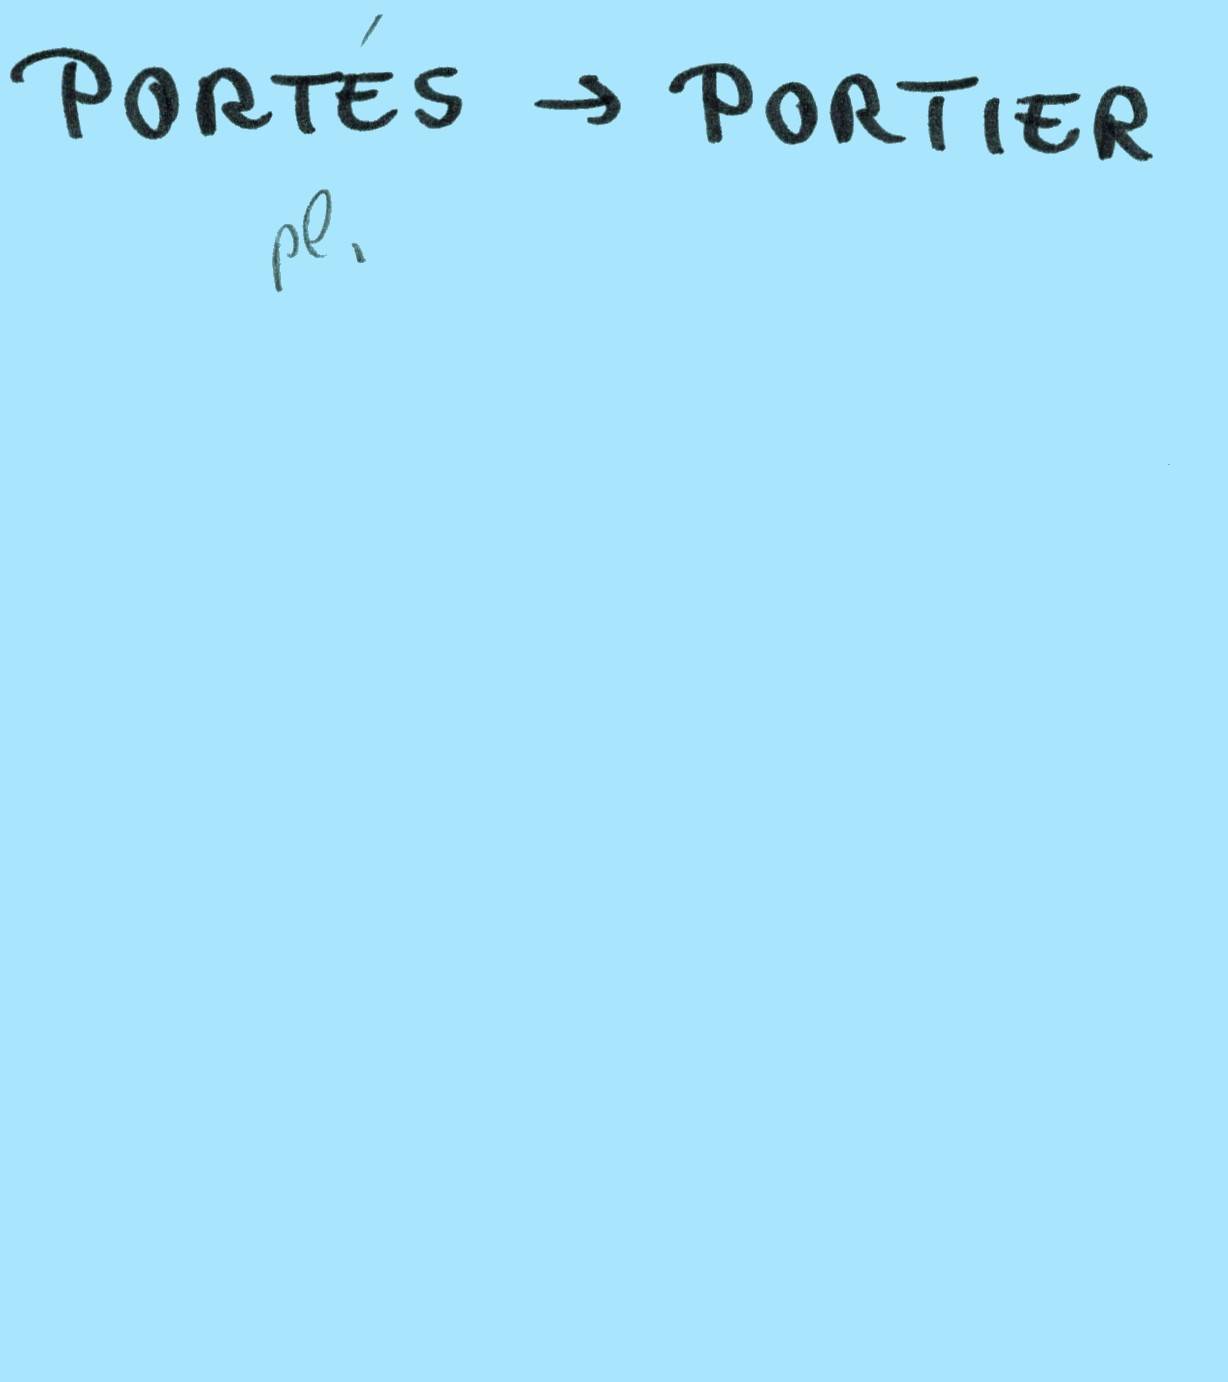 PORTÉS → PORTIER
pl.